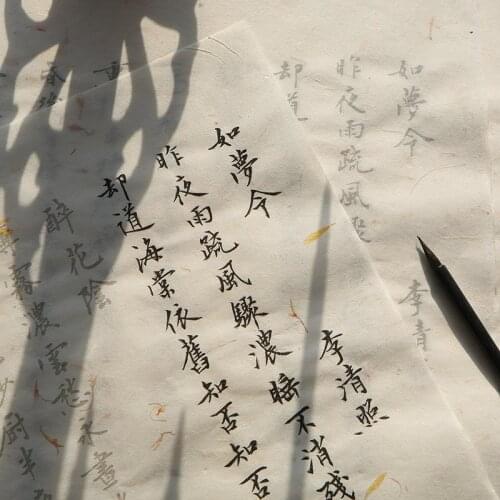 如夢令 李清照
昨夜雨疏風驟濃睡不消殘
却道海棠依舊知否知否
如夢令 李清
昨夜雨疏風驟
却道
醉花陰
霧濃雲愁永晝
厨半